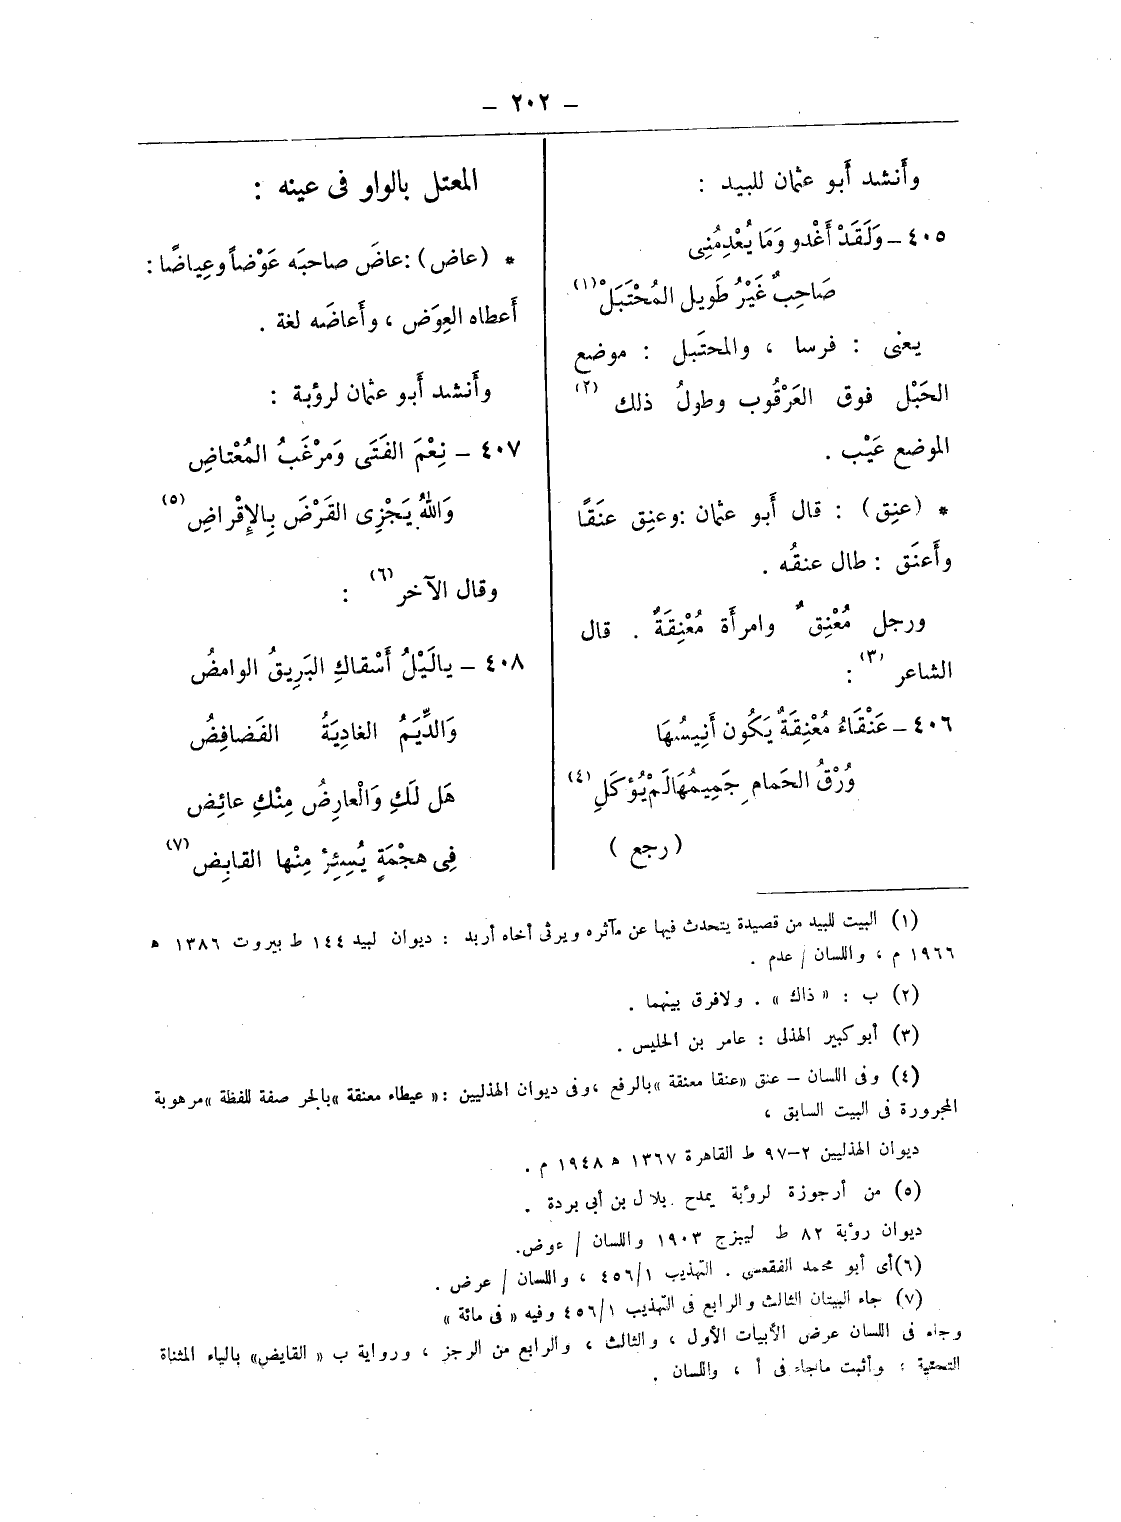 – ٢٠٢ –
وأَنشد أَبو عثمان للبيد :
٤٠٥ – وَلَقَدْ أَغْدو وَمَا يُعْدِمُنِى
صَاحِبٌ غَيْرُ طَويل المُحْتَبَلْ (١)
يعنى : فرسا ، والمحتَبل : موضع
الحَبْل فوق العَرْقُوب وطولُ ذلك (٢)
الموضع عَيْب .
* (عنِق) : قال أَبو عثمان : وعنِق عنَقًا
وأَعنَق : طال عنقُه .
ورجل مُعْنِقٌ وامرأَة مُعْنِقَةٌ . قال
الشاعر (٣) :
٤٠٦ – عَنْقَاءُ مُعْنِقَةٌ يَكُون أَنِيسُهَا
وُرْقُ الحَمام جَمِيمُهَا لَمْ يُؤكَلِ (٤)
(رجع)
المعتل بالواو فى عينه :
* (عاض) : عاضَ صاحبَه عَوْضاً وعِياضًا :
أَعطاه العِوَض ، وأَعاضَه لغة .
وأَنشد أَبو عثمان لرؤبة :
٤٠٧ – نِعْمَ الفَتَى وَمرْغَبُ المُعْتاضِ
وَاللهُ يَجْزِى القَرْضَ بِالإِقْراضِ (٥)
وقال الآخر (٦) :
٤٠٨ – يالَيْلُ أَسْقاكِ البَرِيقُ الوامضُ
وَالدِّيَمُ الغادِيَةُ الفَضافِضُ
هَل لَكِ وَالْعارِضُ مِنْكِ عائِض
فِى هجْمَةٍ يُسئِرُ مِنْها القابِض (٧)
(١) البيت للبيد من قصيدة يتحدث فيها عن مآثره ويرثى أخاه أربد : ديوان لبيد ١٤٤ ط بيروت ١٣٨٦ ه
١٩٦٦ م ، واللسان / عدم .
(٢) ب : « ذاك » . ولافرق بينهما .
(٣) أبو كبير الهذلى : عامر بن الحليس .
(٤) وفى اللسان – عنق «عنقا معنقة» بالرفع ، وفى ديوان الهذليين : « عيطاء معنقة » بالجر صفة للفظة «مرهوبة
المجرورة فى البيت السابق ،
ديوان الهذليين ٢–٩٧ ط القاهرة ١٣٦٧ ه ١٩٤٨ م .
(٥) من أرجوزة لرؤبة يمدح بلال بن أبى بردة .
ديوان رؤبة ٨٢ ط ليبزج ١٩٠٣ واللسان / عوض.
(٦) أى أبو محمد الفقعسى . التهذيب ٤٥٦/١ ، واللسان / عرض .
(٧) جاء البيتان الثالث والرابع فى التهذيب ٤٥٦/١ وفيه « فى مائة »
وجاء فى اللسان عرض الأبيات الأول ، والثالث ، والرابع من الرجز ، ورواية ب « القايض» بالياء المثناة
التحتية ؛ وأثبت ماجاء فى أ ، واللسان .